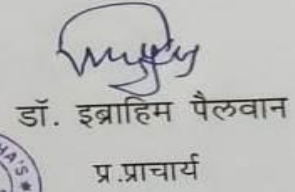 डॉ. इब्राहिम पैलवान
प्र.प्राचार्य
HA'S